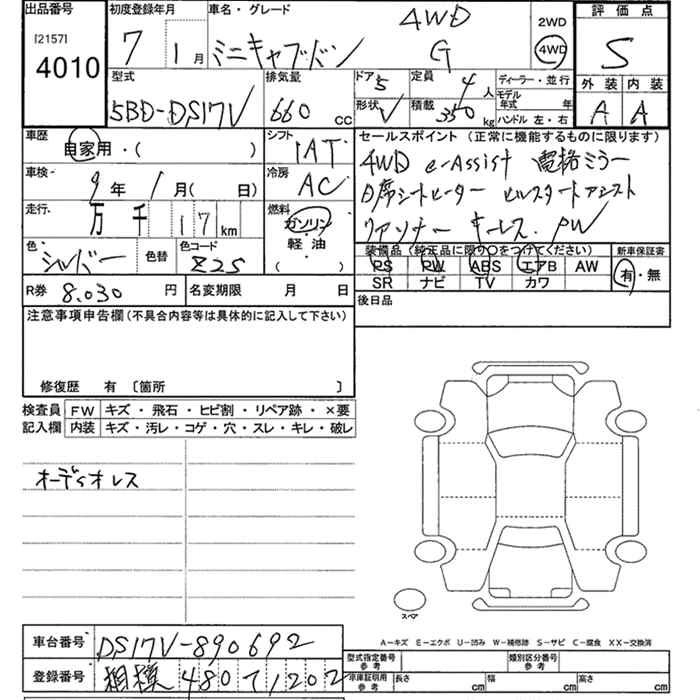 出品番号 [2157] 4010
初度登録年月 7年 1月
車名・グレード ミニキャブバン 4WD G
2WD 4WD
評価点 S
外装 A 内装 A
型式 5BD-DS17V
排気量 660 CC
ドア 5 定員 4人
形状 V 積載 350 kg
ディーラー・並行
モデル年式 年
ハンドル 左・右
車歴 自家用・( )
シフト IAT
セールスポイント (正常に機能するものに限ります)
4WD e-Assist 電格ミラー
D席シートヒーター ヒルスタートアシスト
リアソナー キーレス. PW
車検 9年 1月( 日)
冷房 AC
走行 万 千 17 km
燃料 ガソリン 軽油 ( )
色 シルバー 色替 色コード Z2S
装備品 (純正品に限り○をつけてください)
PS PW ABS エアB AW
SR ナビ TV カワ
新車保証書 有・無
R券 8,030 円 名変期限 月 日
後日品
注意事項申告欄(不具合内容等は具体的に記入して下さい)
修復歴 有 〔箇所 〕
検査員記入欄
FW キズ・飛石・ヒビ割・リペア跡・×要
内装 キズ・汚レ・コゲ・穴・スレ・キレ・破レ
オーディオレス
スペア
A-キズ E-エクボ U-凹み W-補修跡 S-サビ C-腐食 XX-交換済
車台番号 DS17V-890692
登録番号 相模 480 て 1202
型式指定番号 参考 類別区分番号 参考
車庫証明用 参考 長さ cm 幅 cm 高さ cm